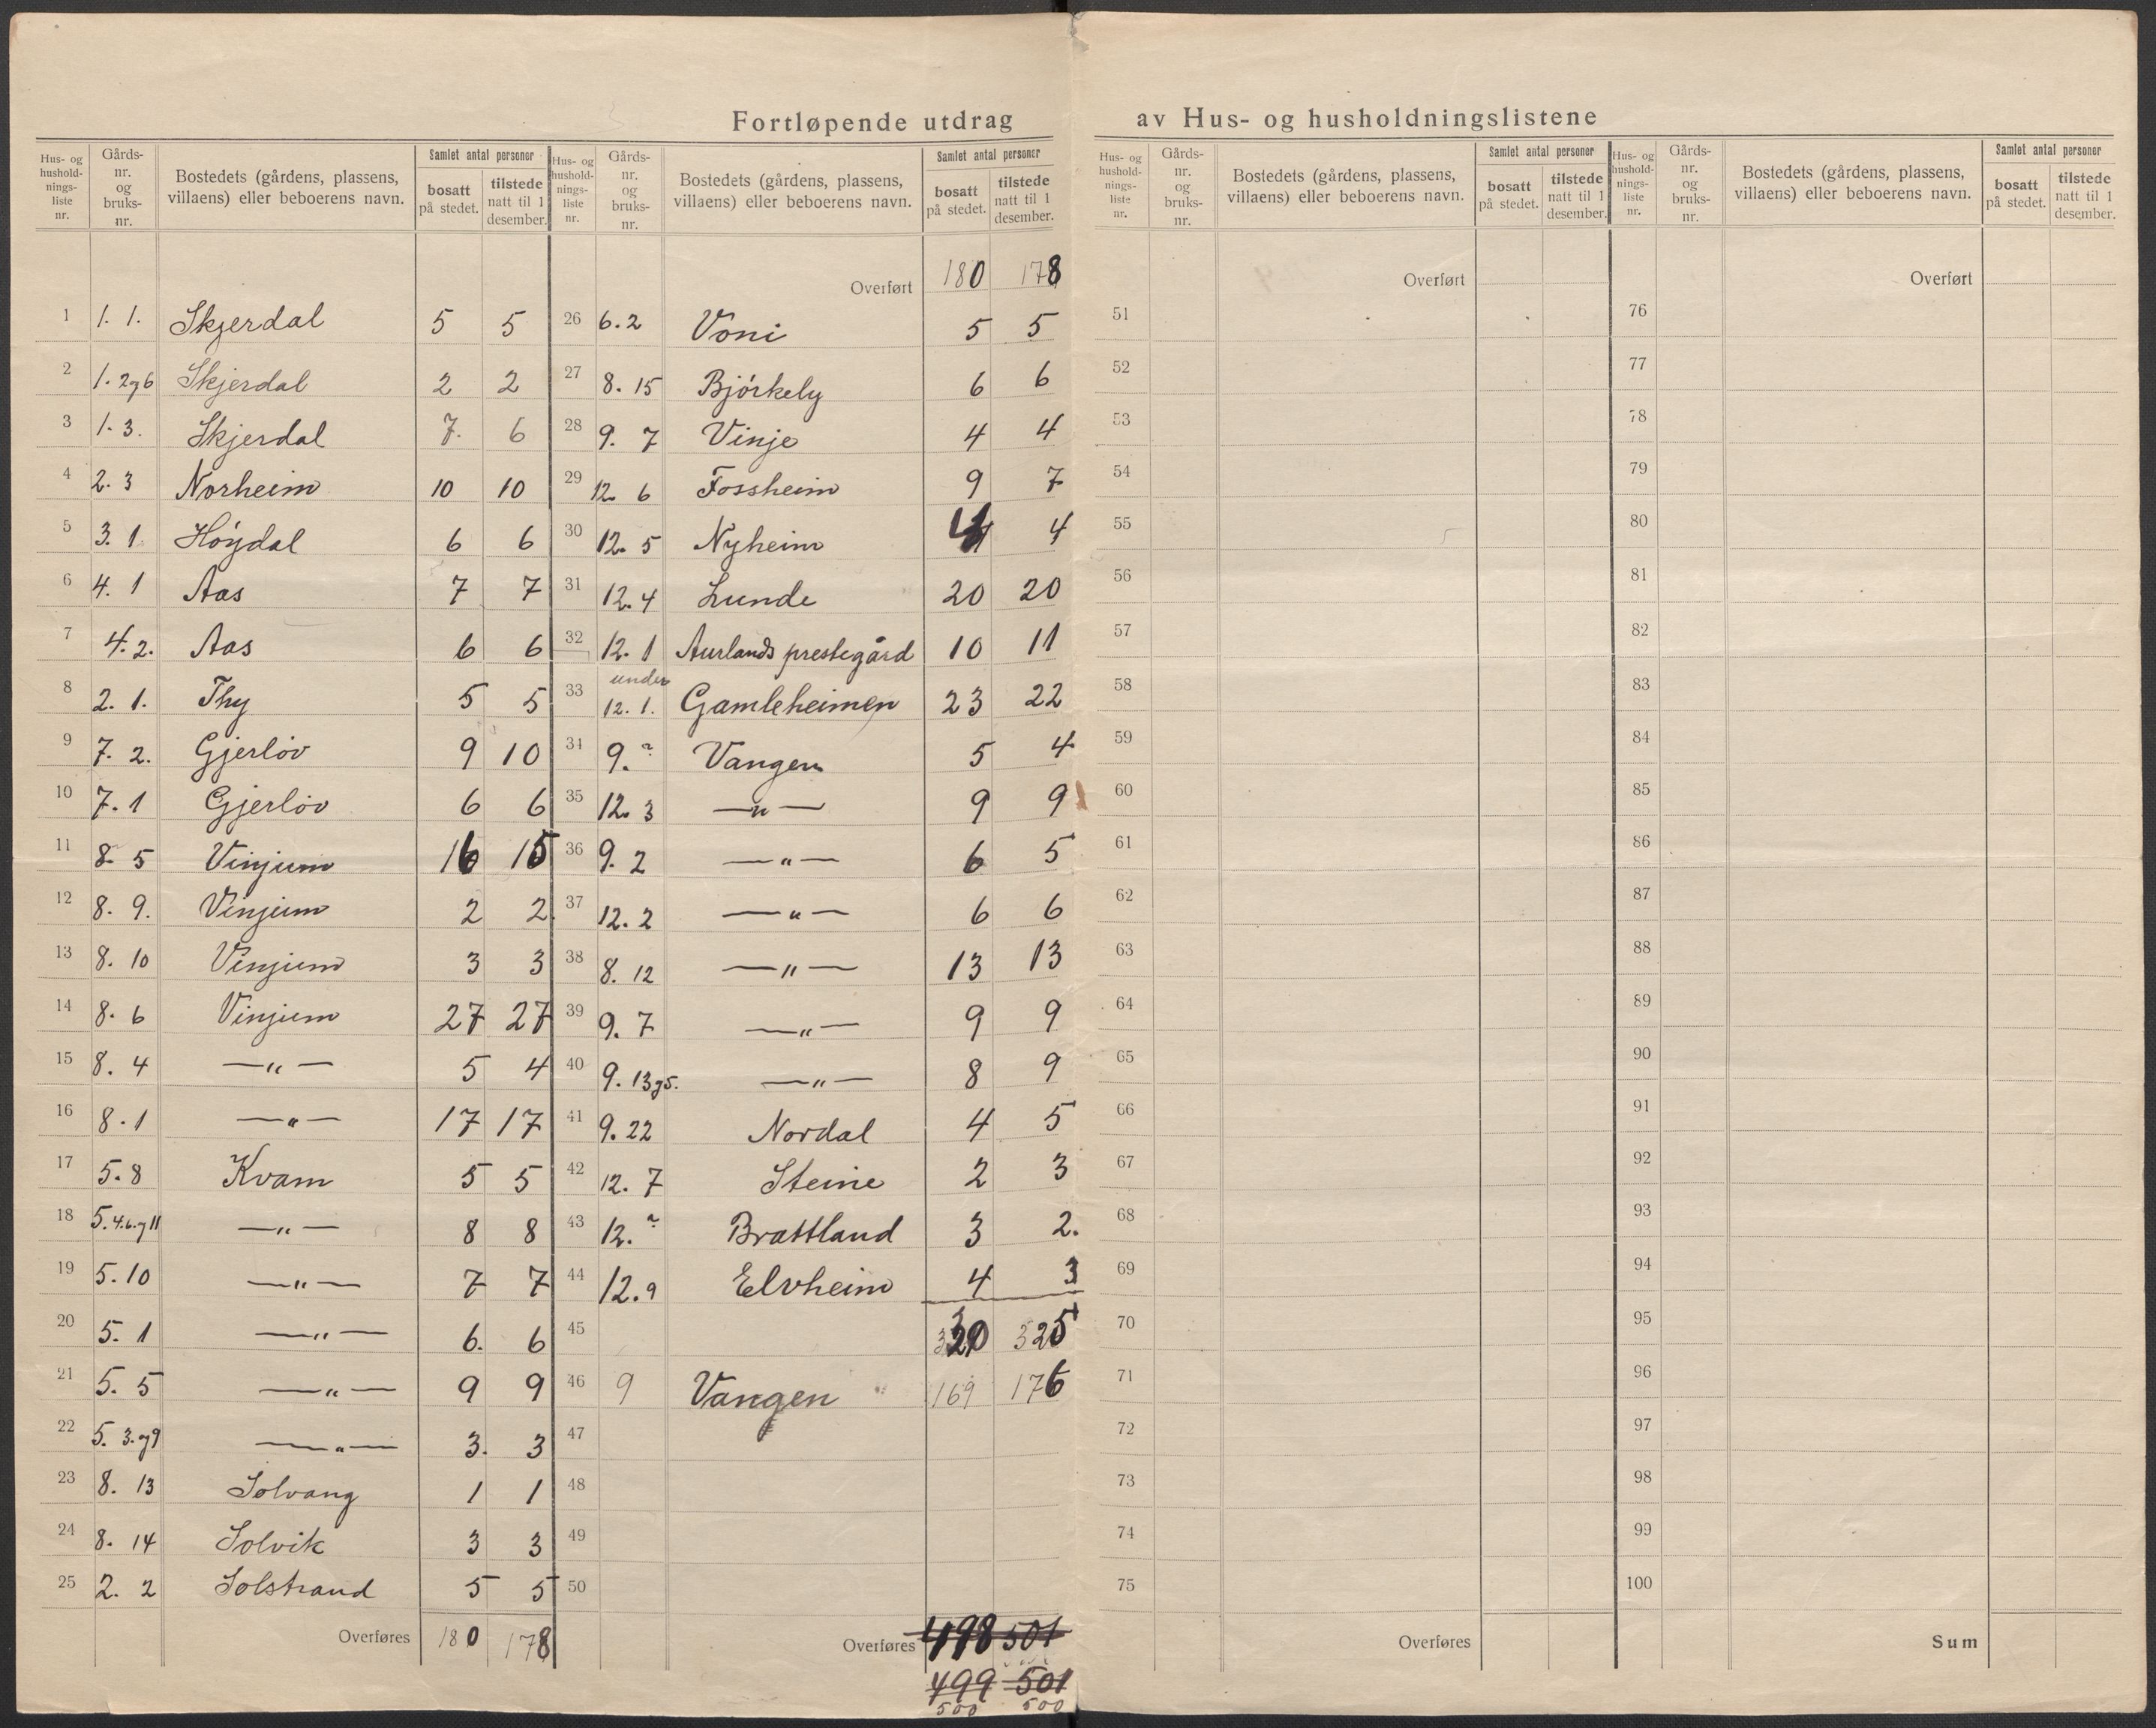 Fortløpende utdrag av Hus- og husholdningslistene
Hus- og husholdnings- liste nr. | Gårds- nr. og bruks- nr. | Bostedets (gårdens, plassens, villaens) eller beboerens navn. | Samlet antal personer | bosatt på stedet. | tilstede natt til 1 desember.
1 1. 1. Skjerdal 5 5
2 1. 2og6 Skjerdal 2 2
3 1. 3. Skjerdal 7. 6
4 2. 3 Norheim 10 10
5 3. 1 Höydal 6 6
6 4. 1 Aas 7 7
7 4. 2. Aas 6 6
8 2. 1. Thy 5 5
9 7. 2. Gjerlöv 9 10
10 7. 1 Gjerlöv 6 6
11 8. 5 Vinjum 16 15
12 8. 9. Vinjum 2 2
13 8. 10 Vinjum 3 3
14 8. 6 Vinjum 27 27
15 8. 4 —„— 5 4
16 8. 1 —„— 17 17
17 5. 8 Kvam 5 5
18 5. 4.6.og11 —„— 8 8
19 5. 10 —„— 7 7
20 5. 1 —„— 6. 6
21 5. 5 —„— 9 9
22 5. 3.og9 —„— 3. 3
23 8. 13 Solvang 1 1
24 8. 14 Solvik 3 3
25 2. 2 Solstrand 5 5
Overføres 180 178
Hus- og husholdnings- liste nr. | Gårds- nr. og bruks- nr. | Bostedets (gårdens, plassens, villaens) eller beboerens navn. | Samlet antal personer | bosatt på stedet. | tilstede natt til 1 desember.
Overført 180 178
26 6. 2 Voni 5 5
27 8. 15 Björkely 6 6
28 9. 7 Vinje 4 4
29 12. 6 Fossheim 9 7
30 12. 5 Nyheim 4 4
31 12. 4 Lunde 20 20
32 12. 1 Aurlands prestegård 10 11
33 under 12. 1. Gamleheimen 23 22
34 9. ? Vangen 5 4
35 12. 3 —„— 9 9
36 9. 2 —„— 6 5
37 12. 2 —„— 6 6
38 8. 12 —„— 13 13
39 9. 7 —„— 9 9
40 9. 13og5. —„— 8 9
41 9. 22 Nordal 4 5
42 12. 7 Steine 2 3
43 12. ? Brattland 3 2.
44 12. 9 Elvheim 4 3
45 325
46 9 Vangen 169 176
47
48
49
50
Overføres 498 501
499 501
500 500
Hus- og husholdnings- liste nr. | Gårds- nr. og bruks- nr. | Bostedets (gårdens, plassens, villaens) eller beboerens navn. | Samlet antal personer | bosatt på stedet. | tilstede natt til 1 desember.
Overført
51
52
53
54
55
56
57
58
59
60
61
62
63
64
65
66
67
68
69
70
71
72
73
74
75
Overføres
Hus- og husholdnings- liste nr. | Gårds- nr. og bruks- nr. | Bostedets (gårdens, plassens, villaens) eller beboerens navn. | Samlet antal personer | bosatt på stedet. | tilstede natt til 1 desember.
Overført
76
77
78
79
80
81
82
83
84
85
86
87
88
89
90
91
92
93
94
95
96
97
98
99
100
Sum